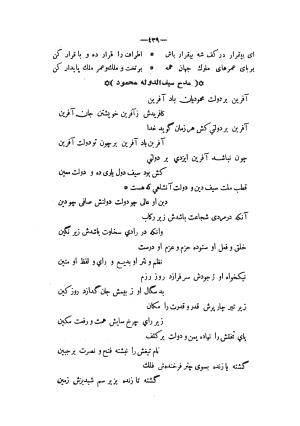 —٤٣٩—
ای بیقرار در کف شه بیقرار باش * اطراف را قرار ده و با قرار کن
بر پای عمرهای ملوک جهان همه * بر تخت و ملک و عمر ملک پایدار کن
*( مدح سیف‌الدوله محمود )*
آفرین بر دولت محمودیان باد آفرین
کافریدش ز آفرین خویشتن جان آفرین
آفرین بر دولتی کش هر زمان گوید خدا
آفرین باد آفرین بر چون تو دولت آفرین
چون نباشد آفرین ایزدی بر دولتی
کش بود سیف دول یاری ده و دولت معین
قطب ملت سیف دین و دولت آنشاهی که هست *
دین او عالی چو دولت دولتش صافی چو دین
آنکه در مردی شجاعت باشدش زیر رکاب
وانکه در رادی سخاوت باشدش زیر نگین
خلق و فعل او ستوده حزم و عزم او درست
نظم و نثر او بدیع و رای و لفظ او متین
نیکخواه او ز جودش سرفرازد روز بزم
بدسگال او ز بیمش جان گدازد روز کین
زیر تیر چار پرش قدر و قدرت را مکان
زیر رای چرخ سایش همت و رفعت مکین
پای تختش را نهاده یمن و دولت بر کتف
نام تیغش را نبشته فتح و نصرت بر جبین
گشته یازنده بسوی چتر فرخنده‌ش فلک
گشته تازنده بزیر سم شبدیزش زمین